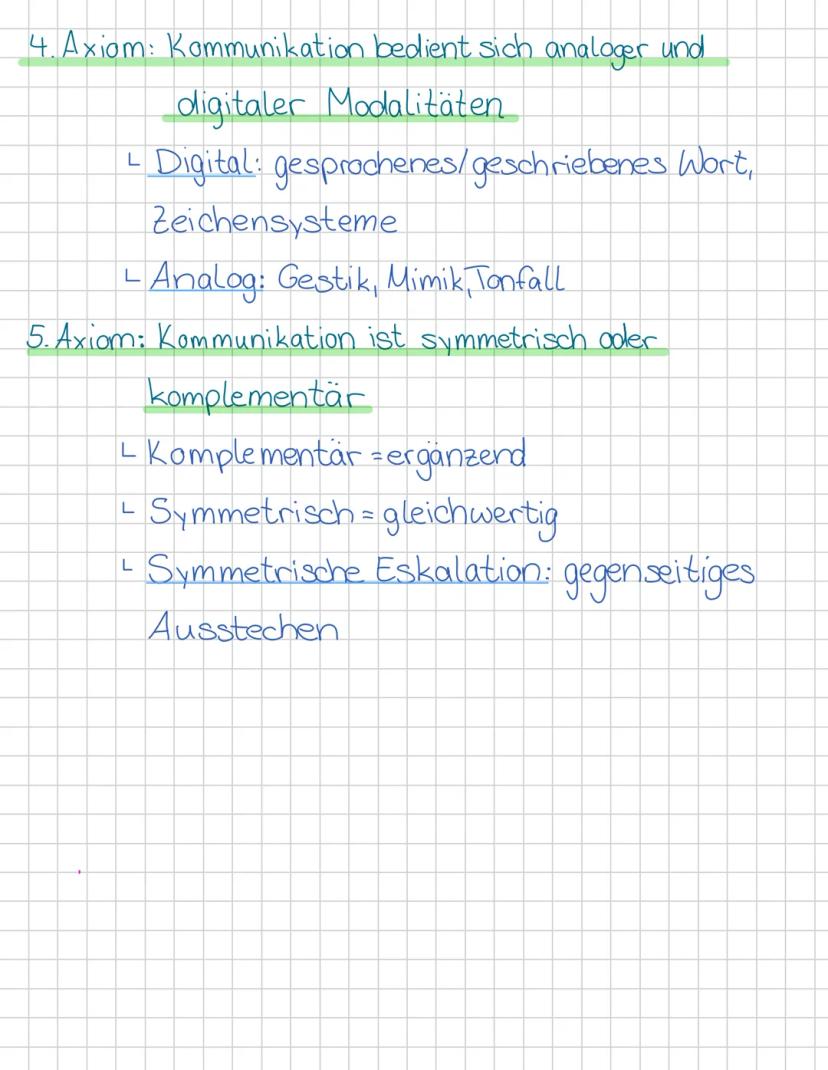 4. Axiom: Kommunikation bedient sich analoger und
digitaler Modalitäten
└ Digital: gesprochenes/geschriebenes Wort,
Zeichensysteme
└ Analog: Gestik, Mimik, Tonfall
5. Axiom: Kommunikation ist symmetrisch oder
komplementär
└ Komplementär = ergänzend
└ Symmetrisch = gleichwertig
└ Symmetrische Eskalation: gegenseitiges
Ausstechen